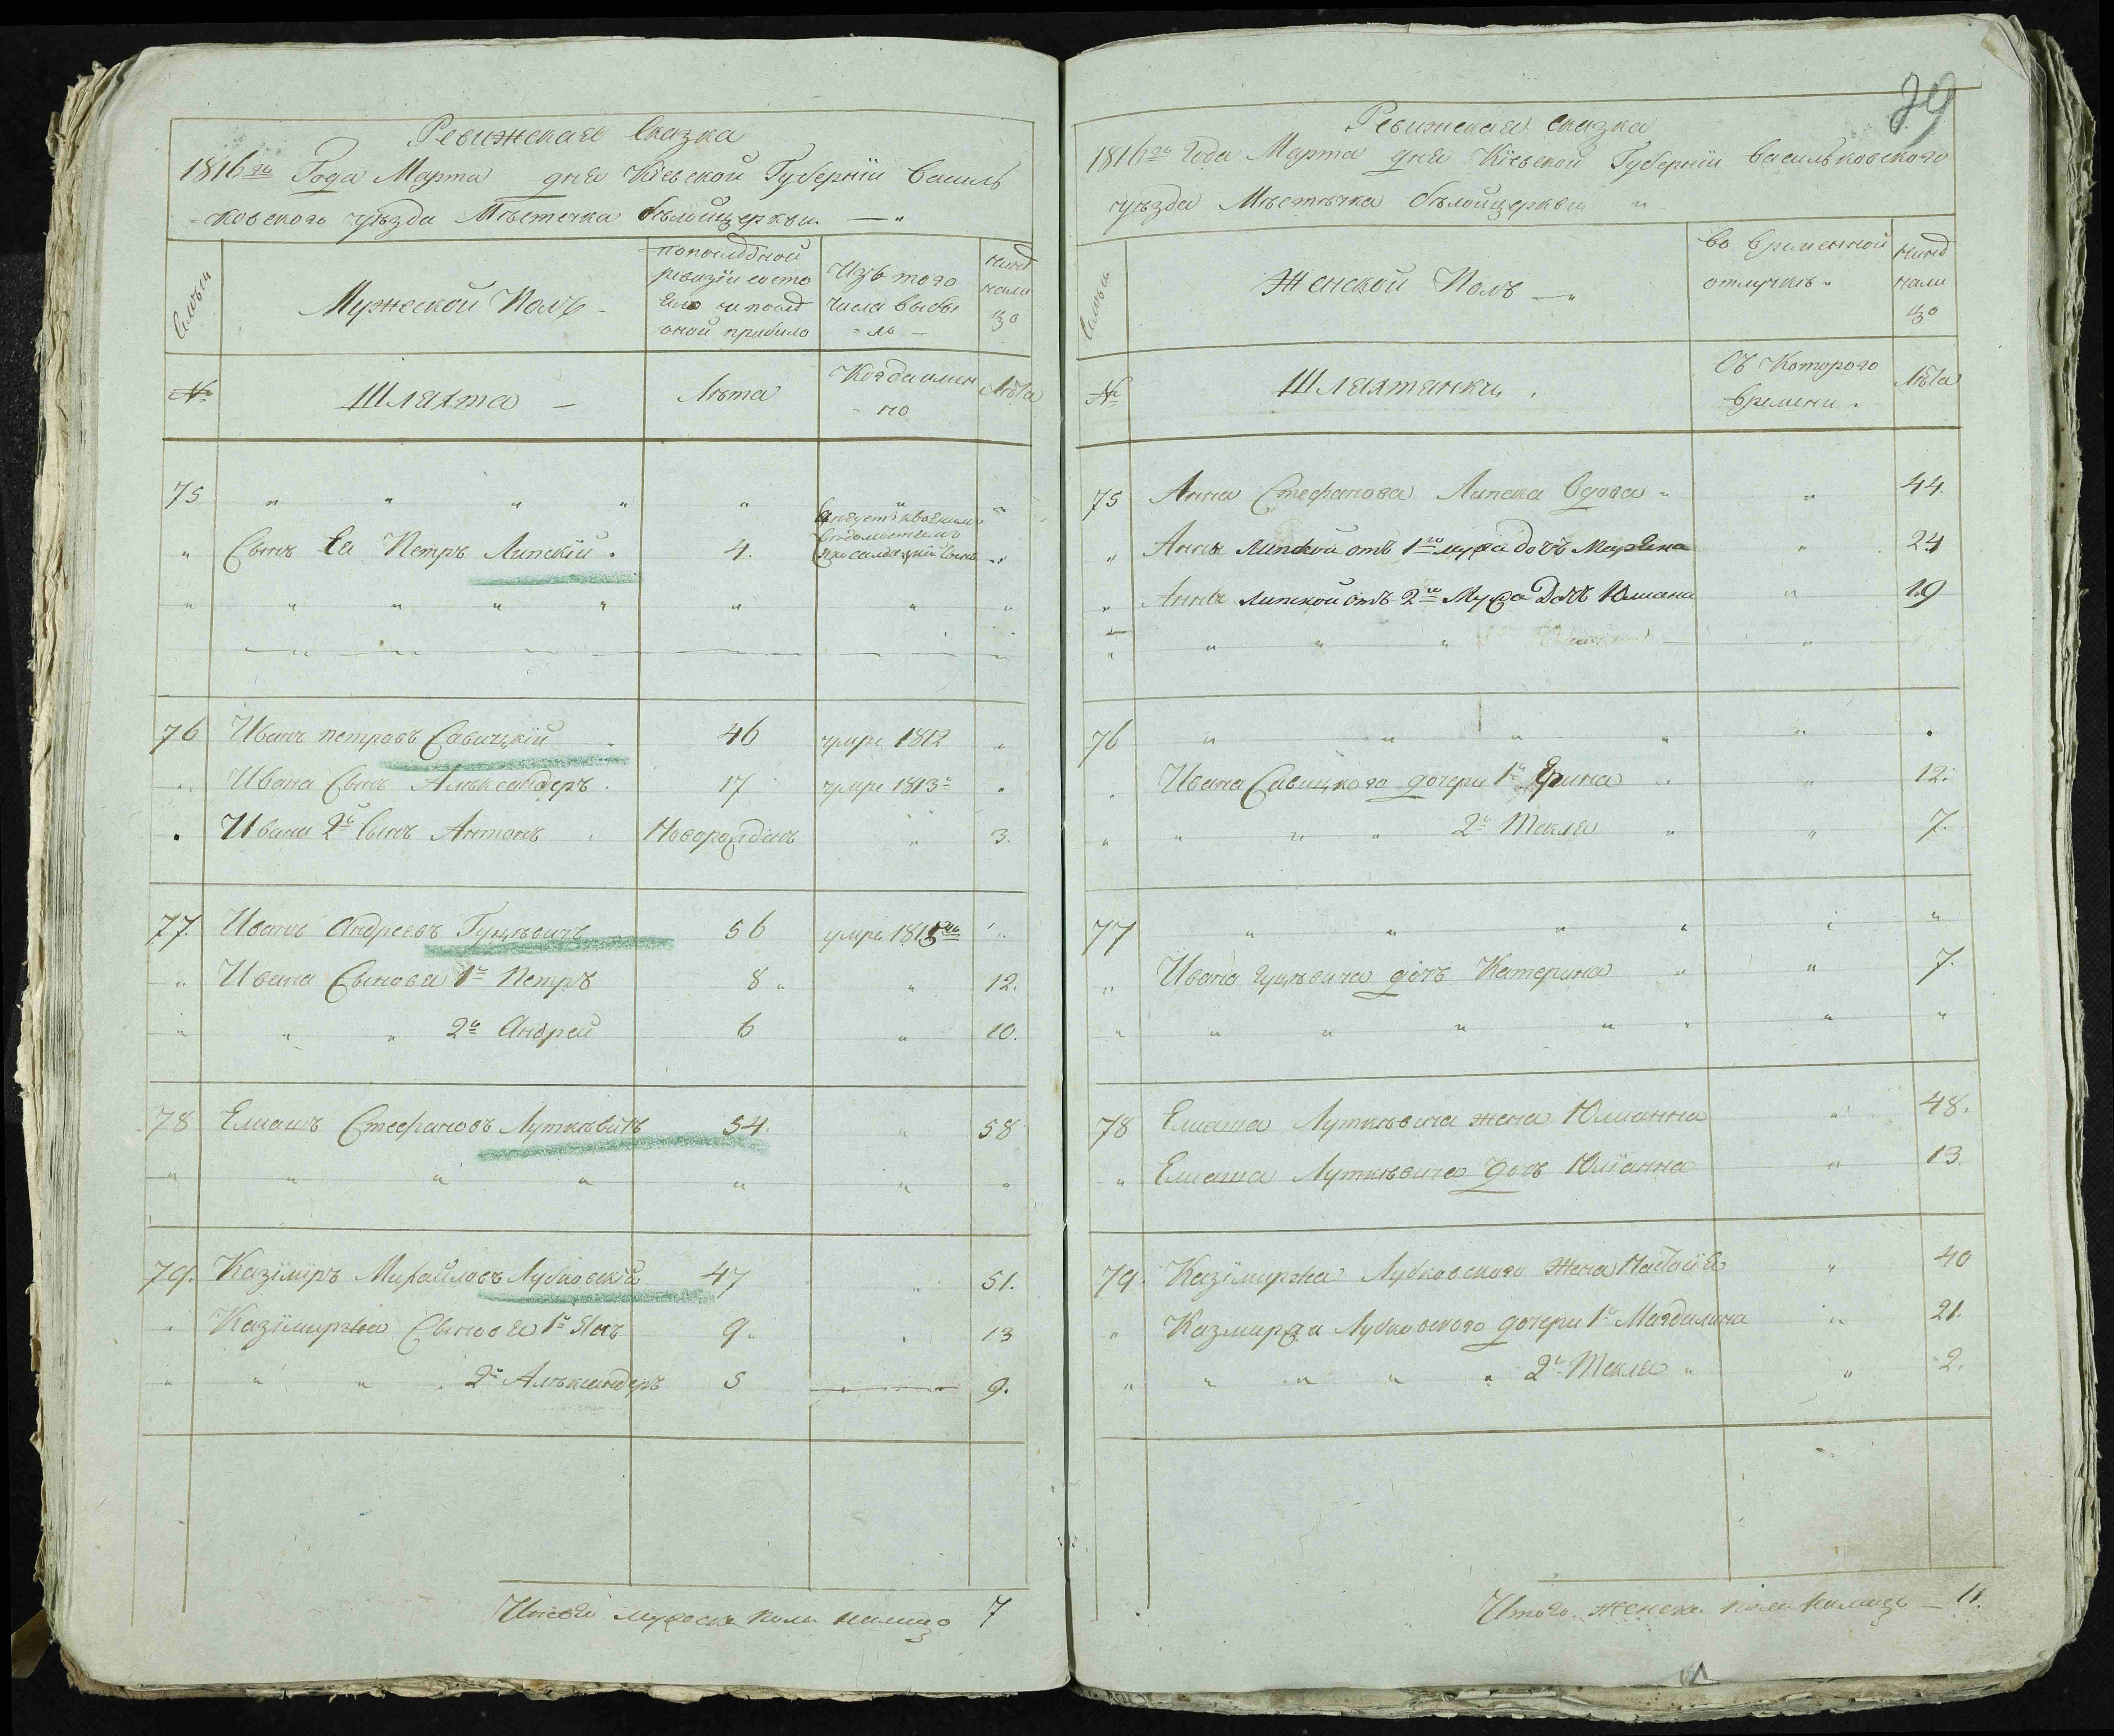 Ревижская Сказка
1816го Года Марта дня Кіевской Губерніи Василь
ковского уѣзда Мѣстечка бѣлойцеркви. — „
Семьи
Мужеской Полъ
попослѣдной
ревизіи состо
яло и послѣ
оной прибыло
Изъ того
числа выбы
ло
нинѣ
нали
цо
№
Шляхта
Лѣта
Когда имен
но
Лѣта
75 „ „ „ „ „ „
„ Сынъ Ея Петръ Липскій. 4.
76 Иванъ петровъ Савицкій 46 умре 1812 „
„ Ивана Сынъ Алѣксандеръ. 17 умре 1813го „
„ Ивана 2й Сынъ Антонъ Новорожденъ „ 3.
77. Иванъ Андреевъ Гуцѣвичъ 56 умре 1815го „
„ Ивана Сыновя 1й Петръ 8 „ 12.
„ „ „ 2й Андрей 6 „ 10.
78 Елиашъ Стефановъ Луткѣвичъ 54. „ 58
„ „ „ „ „ „ „
79. Казіміръ Михайловъ Лубковскій 47 „ 51.
„ Казімиржа Сыновя 1й Янъ 9. „ 13
„ „ „ 2й Алѣксандеръ 5 „ 9.
Итого мужеска пола налицо 7
39
Ревижская сказка
1816го Года Марта дня Кіевской Губерніи Васильковского
уѣзда Мѣстѣчка бѣлойцеркви „
Семьи
Женской Полъ
во временной
отлучкѣ
нинѣ
нали
цо
№
Шляхтянки.
Съ Которого
времени.
Лѣта
75 Анна Стефанова Липска вдова „ „ 44.
„ Анны Липской отъ 1го мужа дочъ Маряна „ 24
„ Анны Липской отъ 2го Мужа Дочъ Юлиана „ 19
„ „ „ „ „
76 „ „ „ „ „ .
„ Ивана Савицкого дочери 1я Ерина „ „ 12.
„ „ „ „ 2я Текля „ „ 7.
77 „ „ „ „ „ „
„ Ивана Гуцѣвича дочъ Катерина „ „ 7.
„ „ „ „ „ „ „ „
78 Елиаша Луткѣвича жена Юлианна „ 48.
„ Елиаша Луткѣвича дочъ Юліанна „ 13.
79. Казімиржа Лубковского Жена „ 40
„ Казмиржа Лубковского дочери 1я Магдалина „ 21.
„ „ „ „ „ 2я Текля „ „ 2.
Итого женска пола налицо — 11.